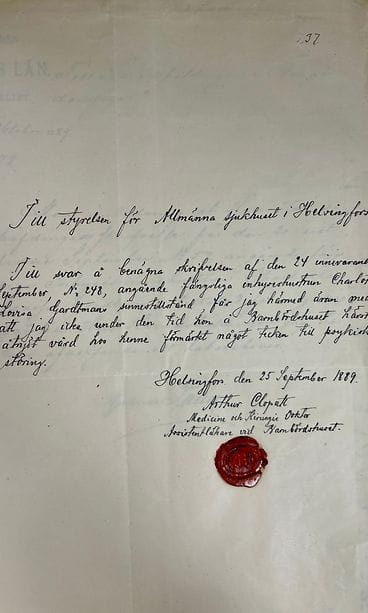 37
S LÄN.
Till styrelsen för Allmänna sjukhuset i Helsingfors
Till svar å benägna skrifvelsen af den 24 innevarande
September, N: 248, angående fångsliga inhyseshustrun Charlot
Lovisa Gardtmans sinnestillstånd får jag härmed äran med
att jag icke under den tid hon å Barnbördshuset härst
åtnjöt vård hos henne förmärkt något tecken till psykisk
störing.
Helsingfors den 25 September 1889.
Arthur Clopatt
Medicine och Kirurgie Doktor
Assistentläkare vid Barnbördshuset.